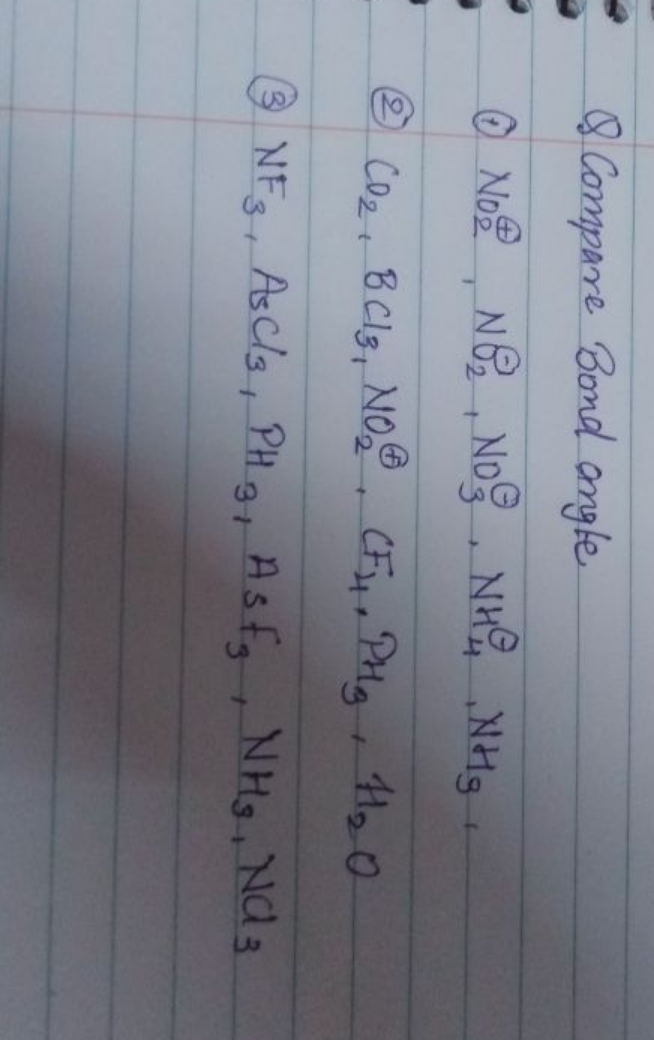 Q Compare Bond angle
① NO₂⊕, NO₂⊖, NO₃⊖, NH₄⊖, NH₃,
② CO₂, BCl₃, NO₂⊕, CF₄, PH₃, H₂O
③ NF₃, AsCl₃, PH₃, AsF₃, NH₃, NCl₃